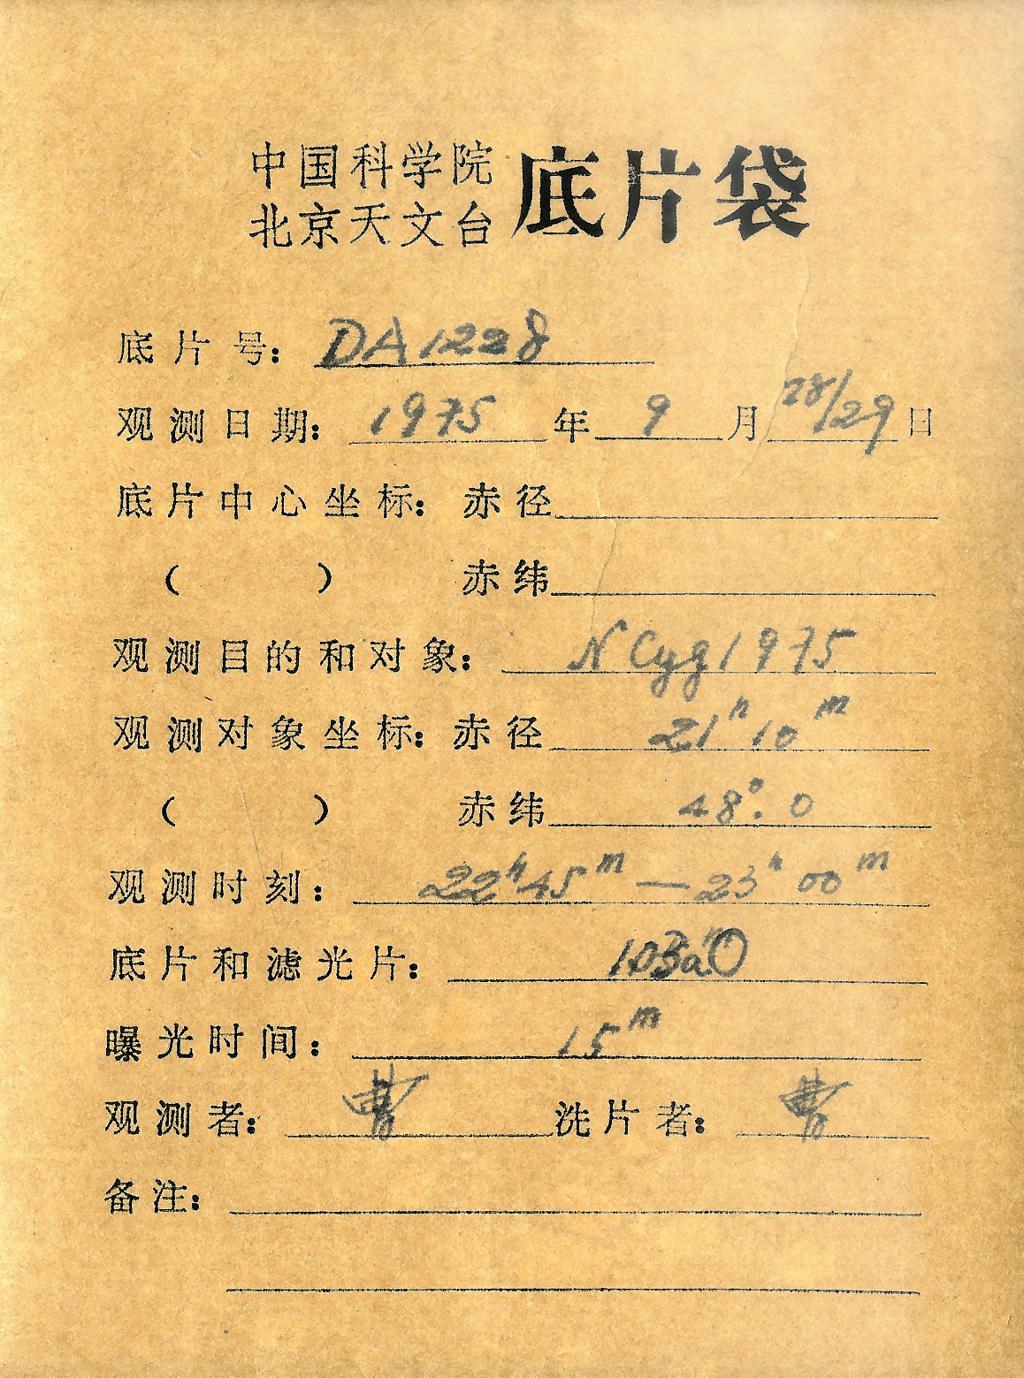 中国科学院
北京天文台 底片袋
底片号：DA1228
观测日期：1975年9月28/29日
底片中心坐标：赤径
（ ） 赤纬
观测目的和对象：N Cyg 1975
观测对象坐标：赤径 21ʰ10ᵐ
（ ） 赤纬 48°.0
观测时刻：22ʰ45ᵐ—23ʰ00ᵐ
底片和滤光片：103aO
曝光时间：15ᵐ
观测者：曹 洗片者：曹
备注：